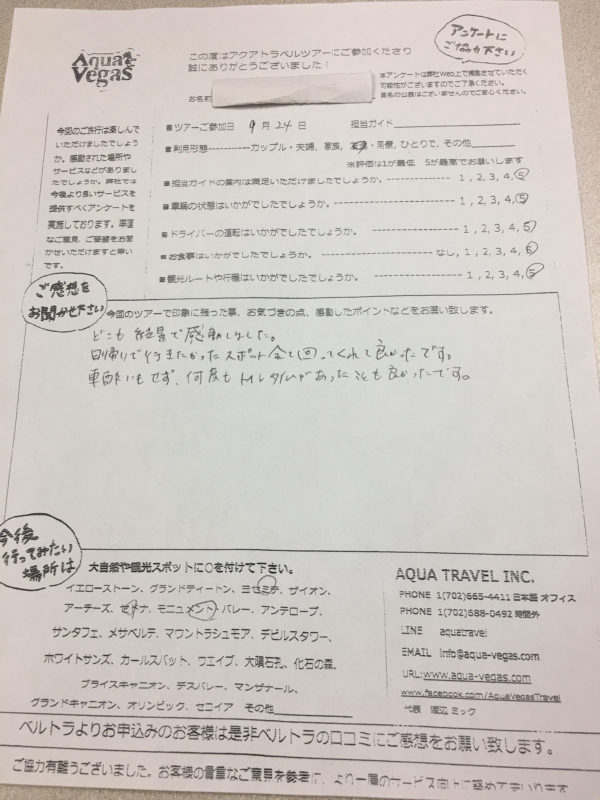 Aqua
Vegas
この度はアクアトラベルツアーにご参加くださり
誠にありがとうございました！
アンケートに
ご協力下さい
本アンケートは弊社Web上で掲載させていただく
可能性がございますのでご了承ください。
実名の公表はございませんのでご安心ください。
お名前
今回のご旅行は楽しんで
いただけましたでしょう
か。感動された場所や
サービスなどがありまし
たでしょうか。弊社では
今後より良いサービスを
提供すべくアンケートを
実施しております。率直
なご意見、ご要望をお聞
かせいただけますと幸い
です。
■ツアーご参加日 9月24日 担当ガイド
■利用形態------------カップル・夫婦, 家族, 友達・同僚, ひとりで, その他
※評価は1が最低 5が最高でお願いします
■担当ガイドの案内は満足いただけましたでしょうか。 1, 2, 3, 4, 5
■車輌の状態はいかがでしたでしょうか。 1, 2, 3, 4, 5
■ドライバーの運転はいかがでしたでしょうか。 1, 2, 3, 4, 5
■お食事はいかがでしたでしょうか。 なし, 1, 2, 3, 4, 5
■観光ルートや行程はいかがでしたでしょうか。 1, 2, 3, 4, 5
ご感想を
お聞かせ下さい
今回のツアーで印象に残った事、お気づきの点、感動したポイントなどをお願い致します。
どこも絶景で感動しました。
日帰りで行きたかったスポット全て回ってくれて良かったです。
車酔いもせず、何度もトイレタイムがあったことも良かったです。
今後
行ってみたい
場所は
大自然や観光スポットに○を付けて下さい。
イエローストーン、グランドティートン、ヨセミテ、ザイオン、
アーチーズ、セドナ、モニュメントバレー、アンテロープ、
サンタフェ、メサベルデ、マウントラシュモア、デビルスタワー、
ホワイトサンズ、カールスバット、ウエイブ、大隕石孔、化石の森、
ブライスキャニオン、デスバレー、マンザナール、
グランドキャニオン、オリンピック、セコイア その他
AQUA TRAVEL INC.
PHONE 1(702)665-4411 日本語 オフィス
PHONE 1(702)588-0492 時間外
LINE aquatravel
EMAIL info@aqua-vegas.com
URL:www.aqua-vegas.com
www.facebook.com/AquaVegasTravel
代表 渡辺 ミック
ベルトラよりお申込みのお客様は是非ベルトラの口コミにご感想をお願い致します。
ご協力有難うございました。お客様の貴重なご意見を参考に、より一層のサービス向上に努めてまいります